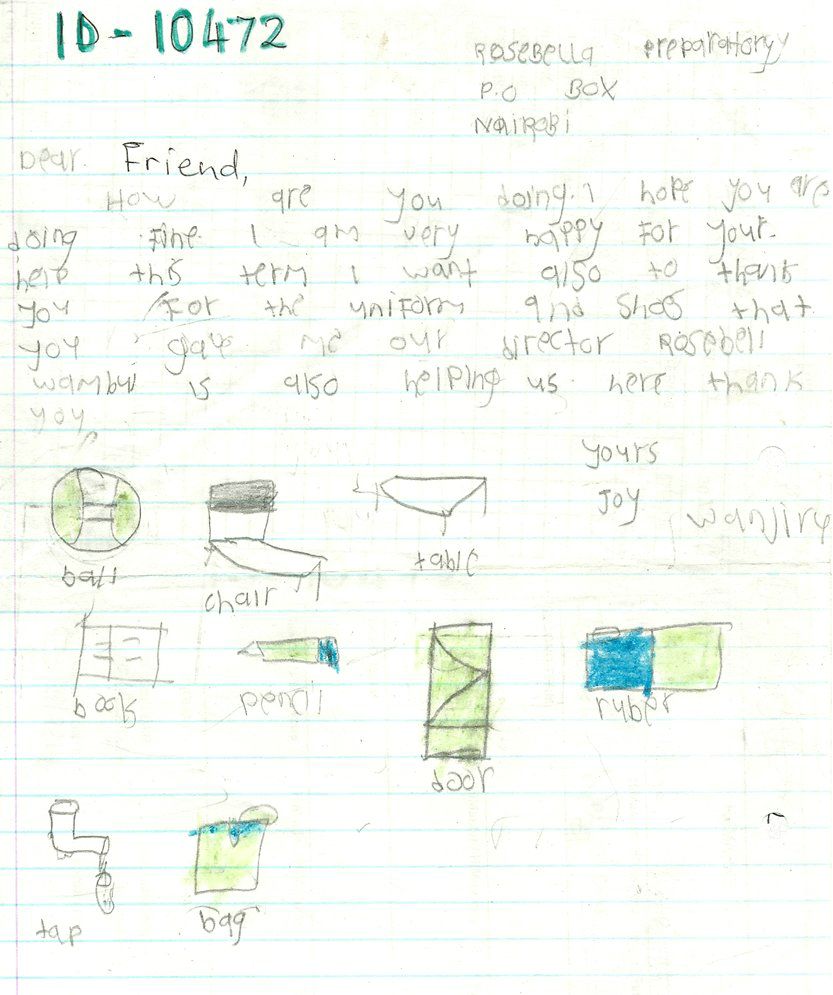 ID - 10472
ROSEBElla preparatoryy
P.O BOX
NAIROBI
Dear. Friend,
How are you doing. I hope you are
doing fine I am very happy for your.
here this term I want also to thank
you For the uniform and shoes that
you gave me our director ROSEBEll
wambui is also helping us here thank
you
yours
JOY wanjiru
ball chair table
book pencil door ruber
tap bag